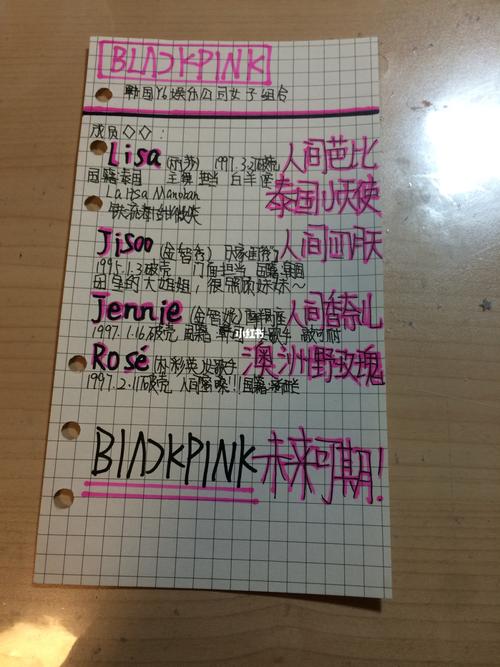 BLACKPINK
韩国YG娱乐公司女子组合
成员◇◇:
Lisa (丽莎) 1997.3.27破壳 人间芭比
国籍泰国 主舞担当 白羊座 泰国小天使
Lalisa Manoban
Jisoo (金智秀) 人间四月天
1995.1.3破壳 门面担当 国籍韩国
团里的大姐姐,很照顾妹妹~
Jennie (金智妮) 人间香奈儿
1997.1.16破壳 国籍 韩 歌手
小红书
Rosé (朴彩英) 歌手 澳洲野玫瑰
1997.2.11破壳 人间 !!!国籍
BLACKPINK 未来可期!